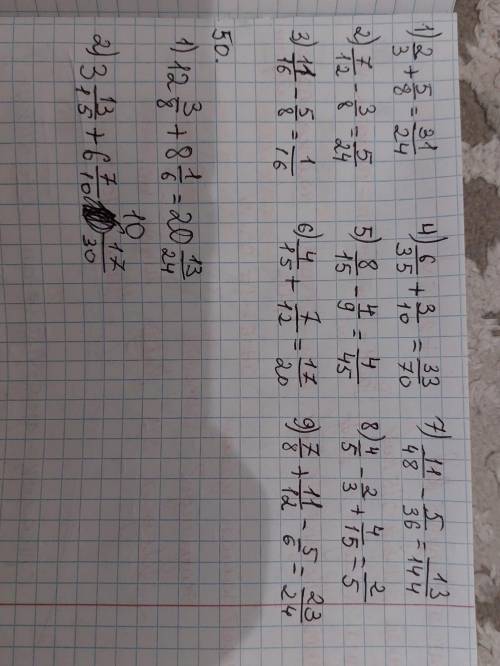 1) 2/3 + 5/8 = 31/24
2) 7/12 - 3/8 = 5/24
3) 11/16 - 5/8 = 1/16
4) 6/35 + 3/10 = 33/70
5) 8/15 - 4/9 = 4/45
6) 4/15 + 7/12 = 17/20
7) 11/48 - 5/36 = 13/144
8) 4/5 - 2/3 + 4/15 = 2/5
9) 7/8 + 11/12 - 5/6 = 23/24
50.
1) 12 3/8 + 8 1/6 = 20 13/24
2) 3 13/15 + 6 7/10 10 17/30